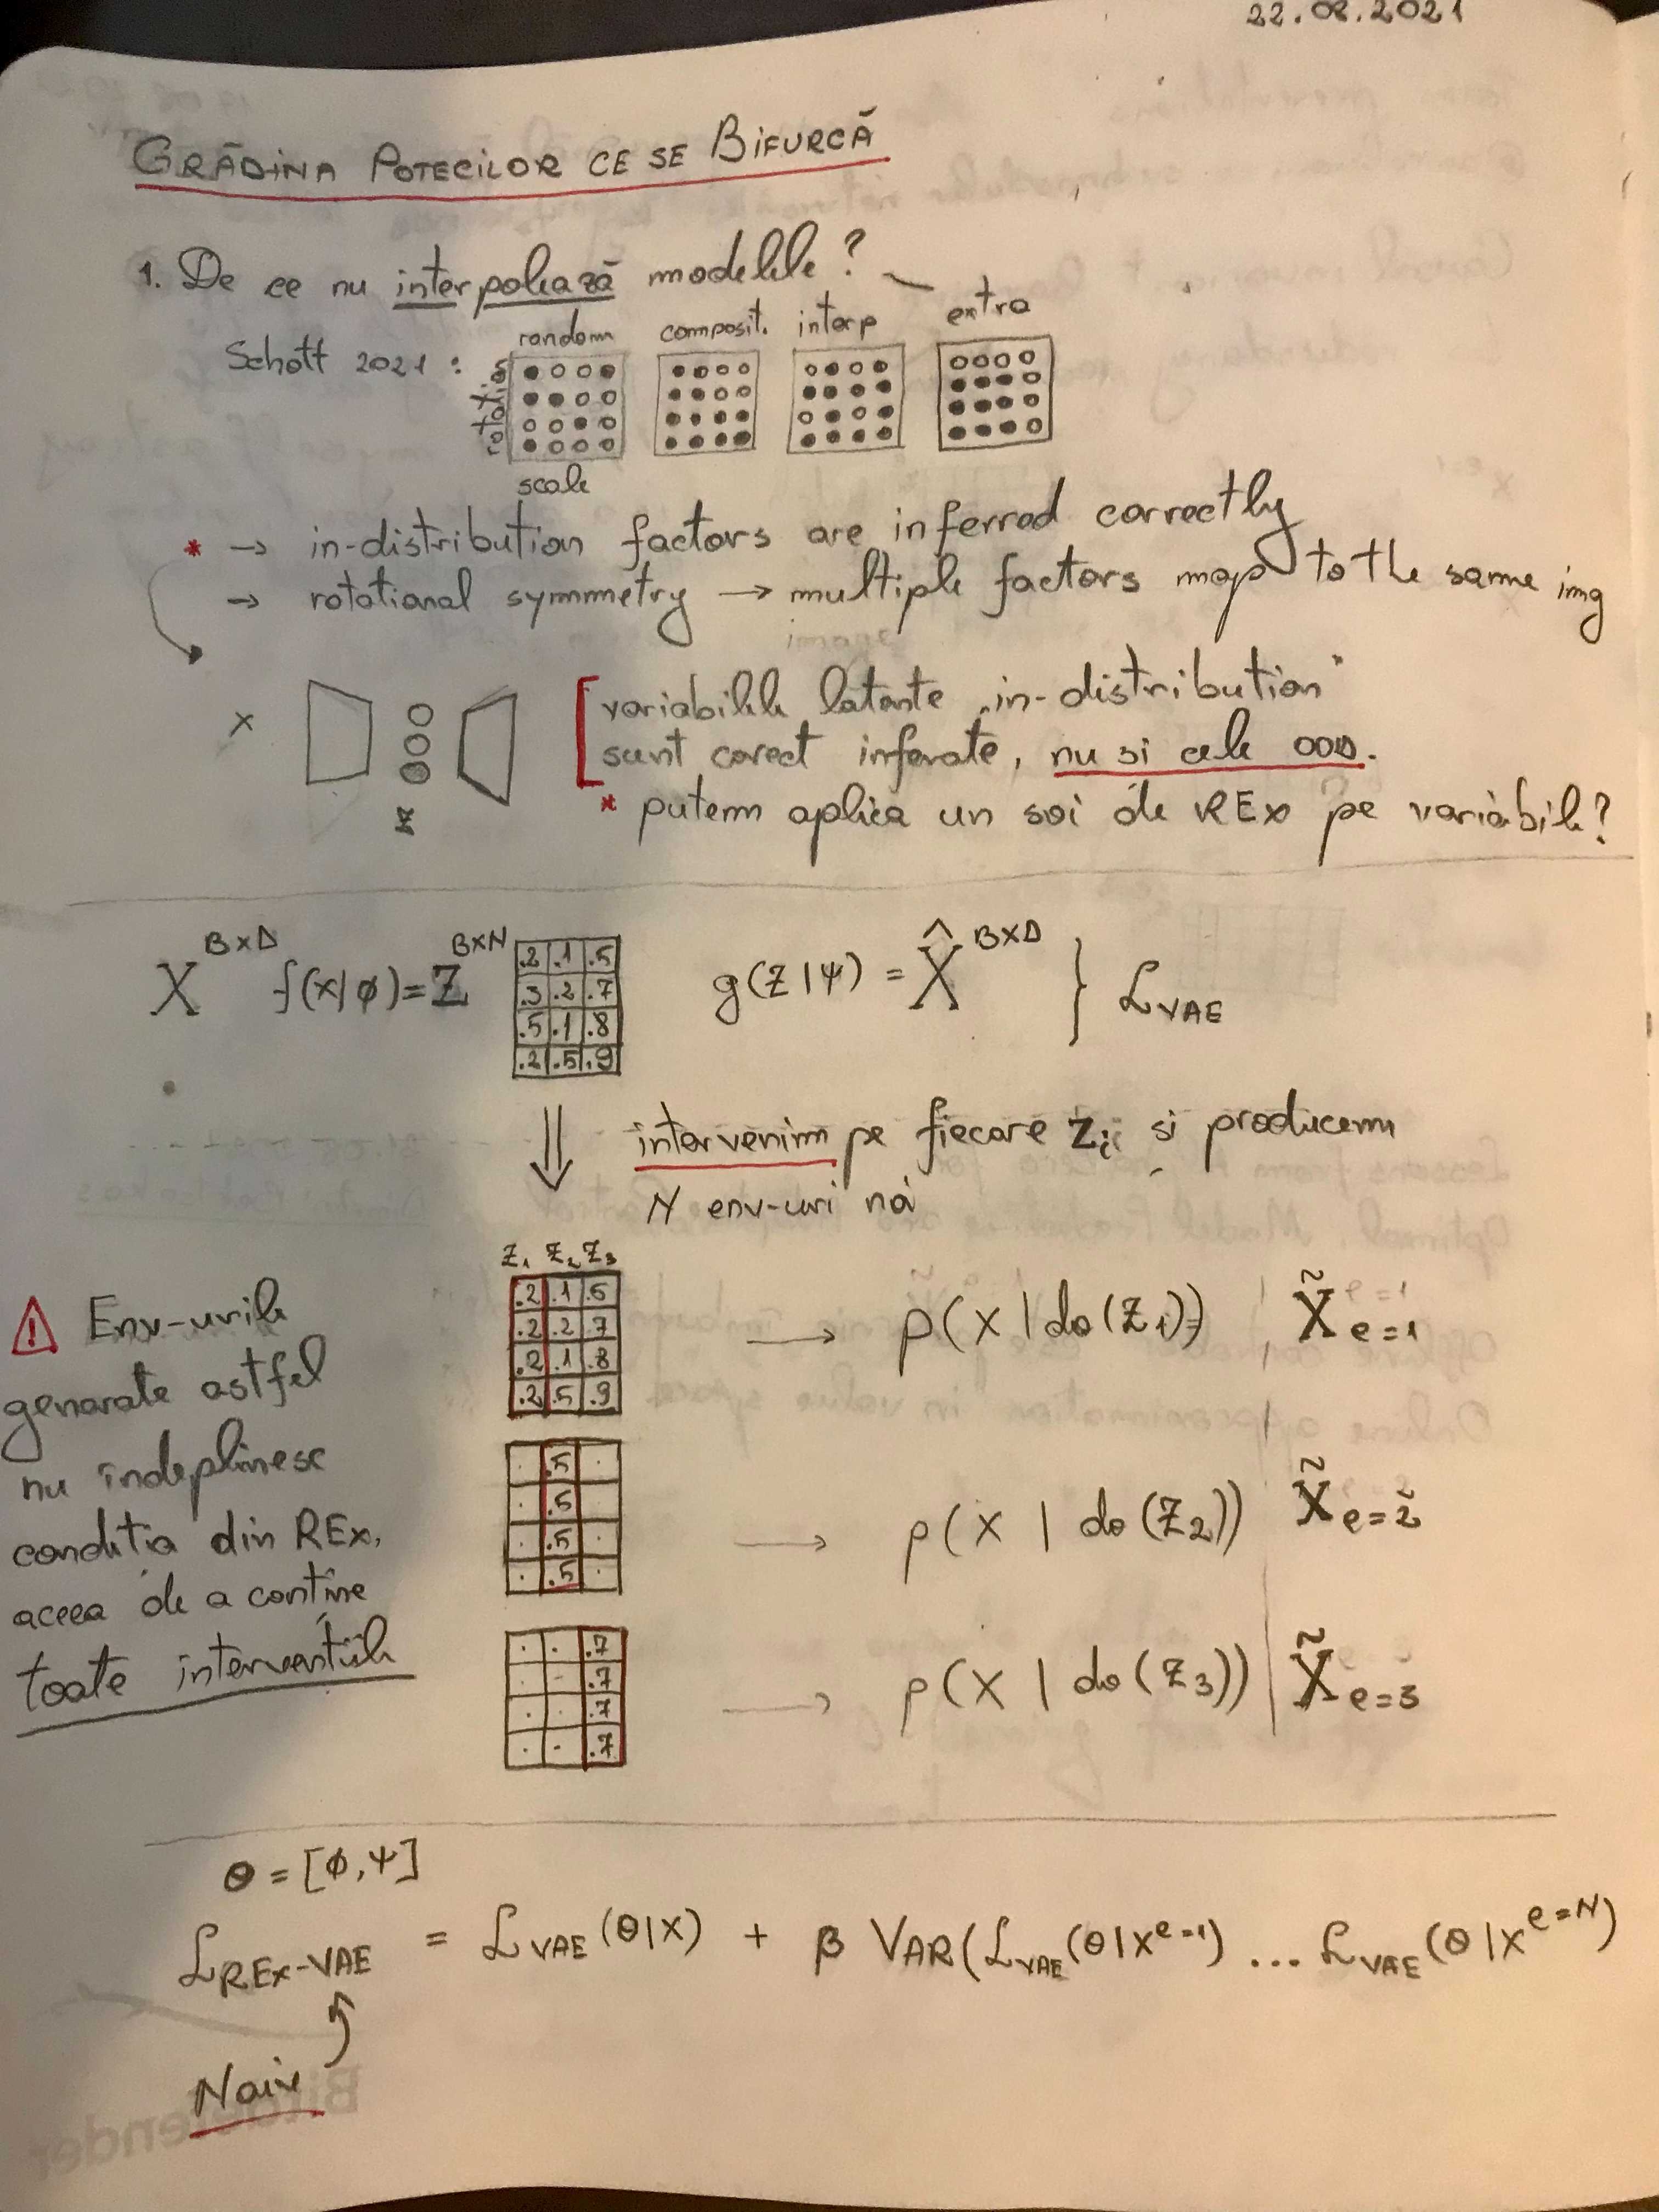 22.08.2021
GRĂDINA POTECILOR CE SE BIFURCĂ
1. De ce nu interpolează modelele?
Schott 2021:
random composit. interp extra
rotatio
scale
* → in-distribution factors are inferred correctly
→ rotational symmetry → multiple factors map to the same img
X
Z
variabilele latente „in-distribution"
sunt corect inferate, nu si cele OOD.
* putem aplica un soi de REx pe variabile?
X^{B×D} f(x|ϕ)=Z^{B×N}
.2 .1 .5
.3 .2 .7
.5 .1 .8
.2 .5 .9
g(Z|ψ) = X̂^{B×D} } ℒ_{VAE}
⇓ intervenim pe fiecare Z_i și producem
N env-uri noi
Z₁ Z₂ Z₃
.2 .1 .5
.2 .2 .7
.2 .1 .8
.2 .5 .9
→ p(X | do(Z₁)) X̃_{e=1}
. .5 .
. .5 .
. .5 .
. .5 .
→ p(X | do(Z₂)) X̃_{e=2}
. . .7
. . .7
. . .7
. . .7
→ p(X | do(Z₃)) X̃_{e=3}
⚠ Env-urile
generate astfel
nu îndeplinesc
condiția din REx,
aceea de a conține
toate intervențiile
θ = [ϕ,ψ]
ℒ_{REx-VAE} = ℒ_{VAE}(θ|X) + β VAR(ℒ_{VAE}(θ|X^{e=1}) ... ℒ_{VAE}(θ|X^{e=N})
Naiv
Bitdefender